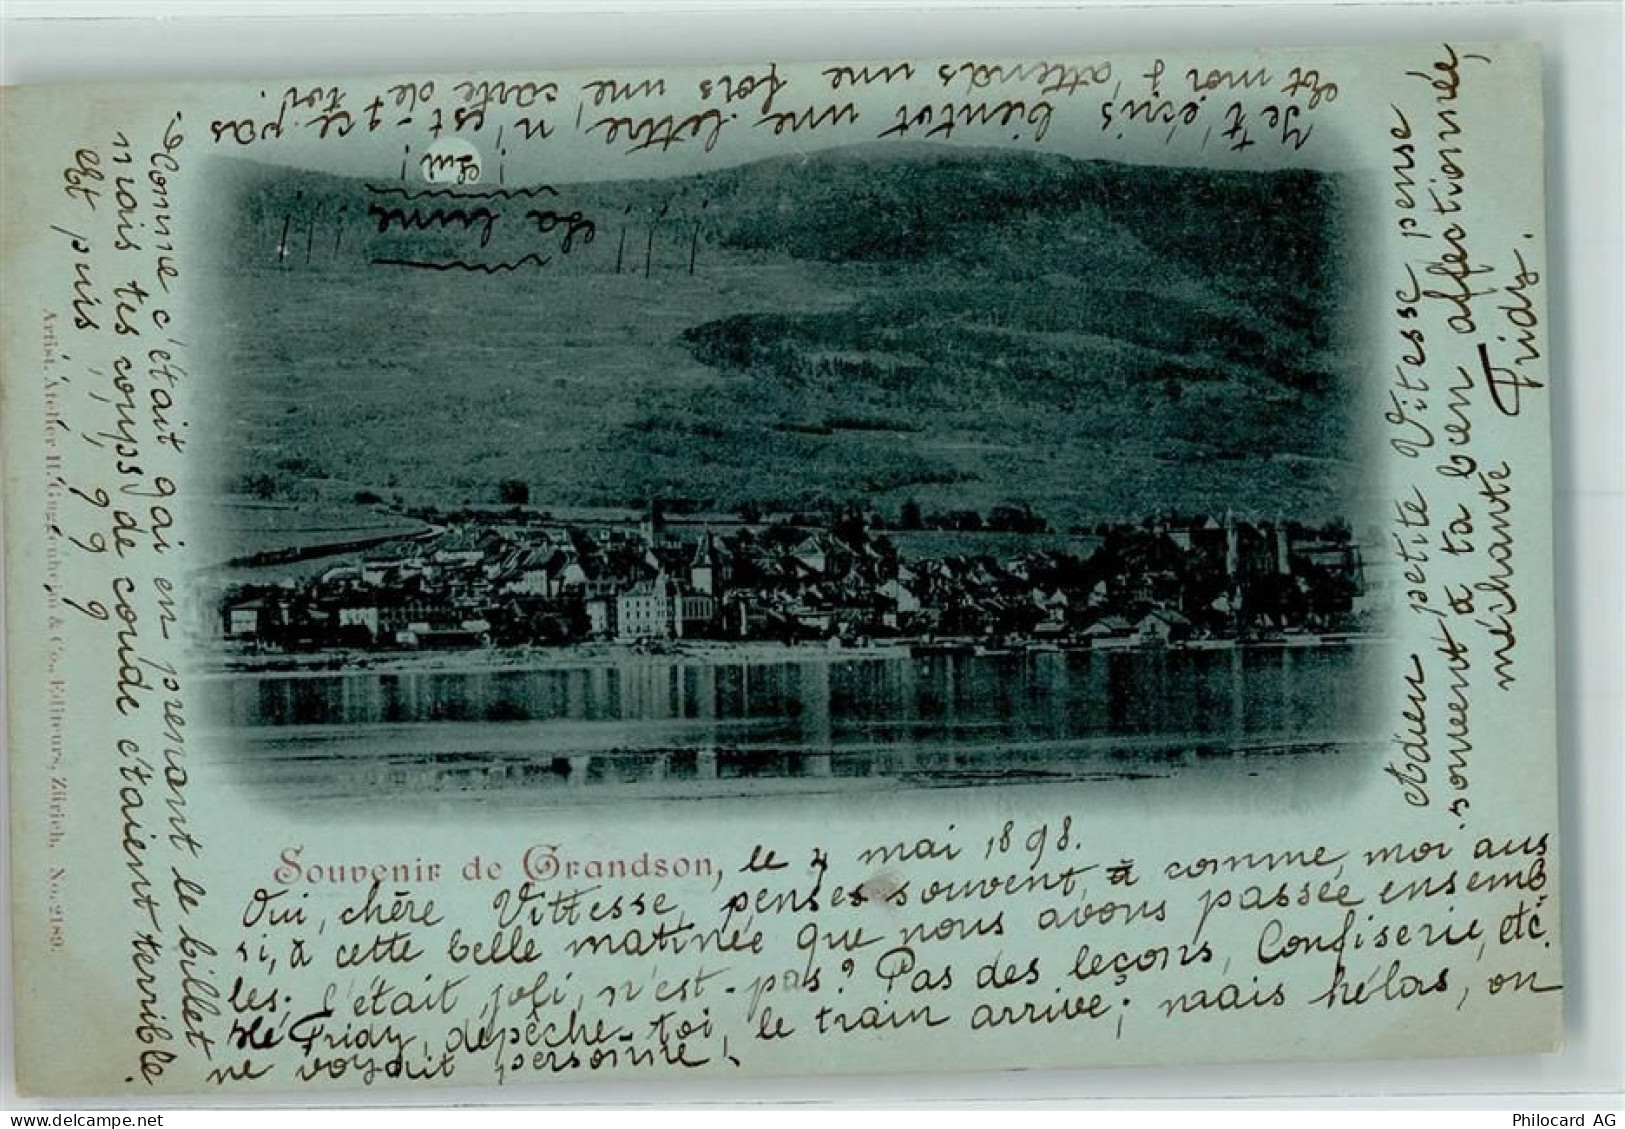 Souvenir de Grandson, le 4 mai 1898.
Oui, chère Vittesse, penses souvent, à comme moi aus
si, à cette belle matinée que nous avons passée ensemb
les; c'était joli, n'est-pas? Pas des leçons, Confiserie, etc.
Hé Fridy, dépêche-toi, le train arrive; mais hélas, on
ne voyait personne,
Comme c'était gai en prenant le billet
mais tes coups de coude étaient terrible.
Et puis , , , , ? ? ? ?
Je t'écris bientot une lettre, n'est-ce pas
Et moi j'attends une fois une carte de toi.
! Lui !
La lune
Adieu petite Vitesse pense
souvent à ta bien affectionnée,
méchante Fridy.
Artist. Atelier H. Guggenheim & Co., Editeurs, Zürich. No. 2189.
Philocard AG